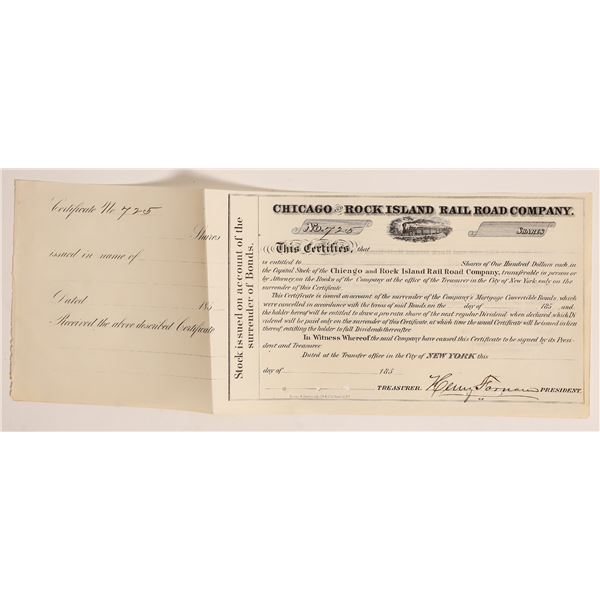 Certificate No 725
Shares
issued in name of
Dated 185
Received the above described Certificate
Stock issued on account of the
surrender of Bonds.
CHICAGO AND ROCK ISLAND RAIL ROAD COMPANY.
No. 725 SHARES
This Certifies, that
is entitled to Shares of One Hundred Dollars each, in
the Capital Stock of the Chicago and Rock Island Rail Road Company, transferable in person or
by Attorney, on the Books of the Company at the office of the Treasurer in the City of New York, only on the
surrender of this Certificate.
This Certificate is issued on account of the surrender of the Company's Mortgage Convertible Bonds, which
were cancelled in accordance with the terms of said Bonds, on the day of 185 and
the holder hereof will be entitled to draw a pro rata share of the next regular Dividend, when declared which Di
vidend will be paid only on the surrender of this Certificate at which time the usual Certificate will be issued in lieu
thereof, entitling the holder to full Dividends thereafter.
In Witness Whereof the said Company have caused this Certificate to be signed by its Presi
dent and Treasurer
Dated at the Transfer office in the City of NEW YORK this
day of 185
TREASURER. Henry Farnam PRESIDENT.